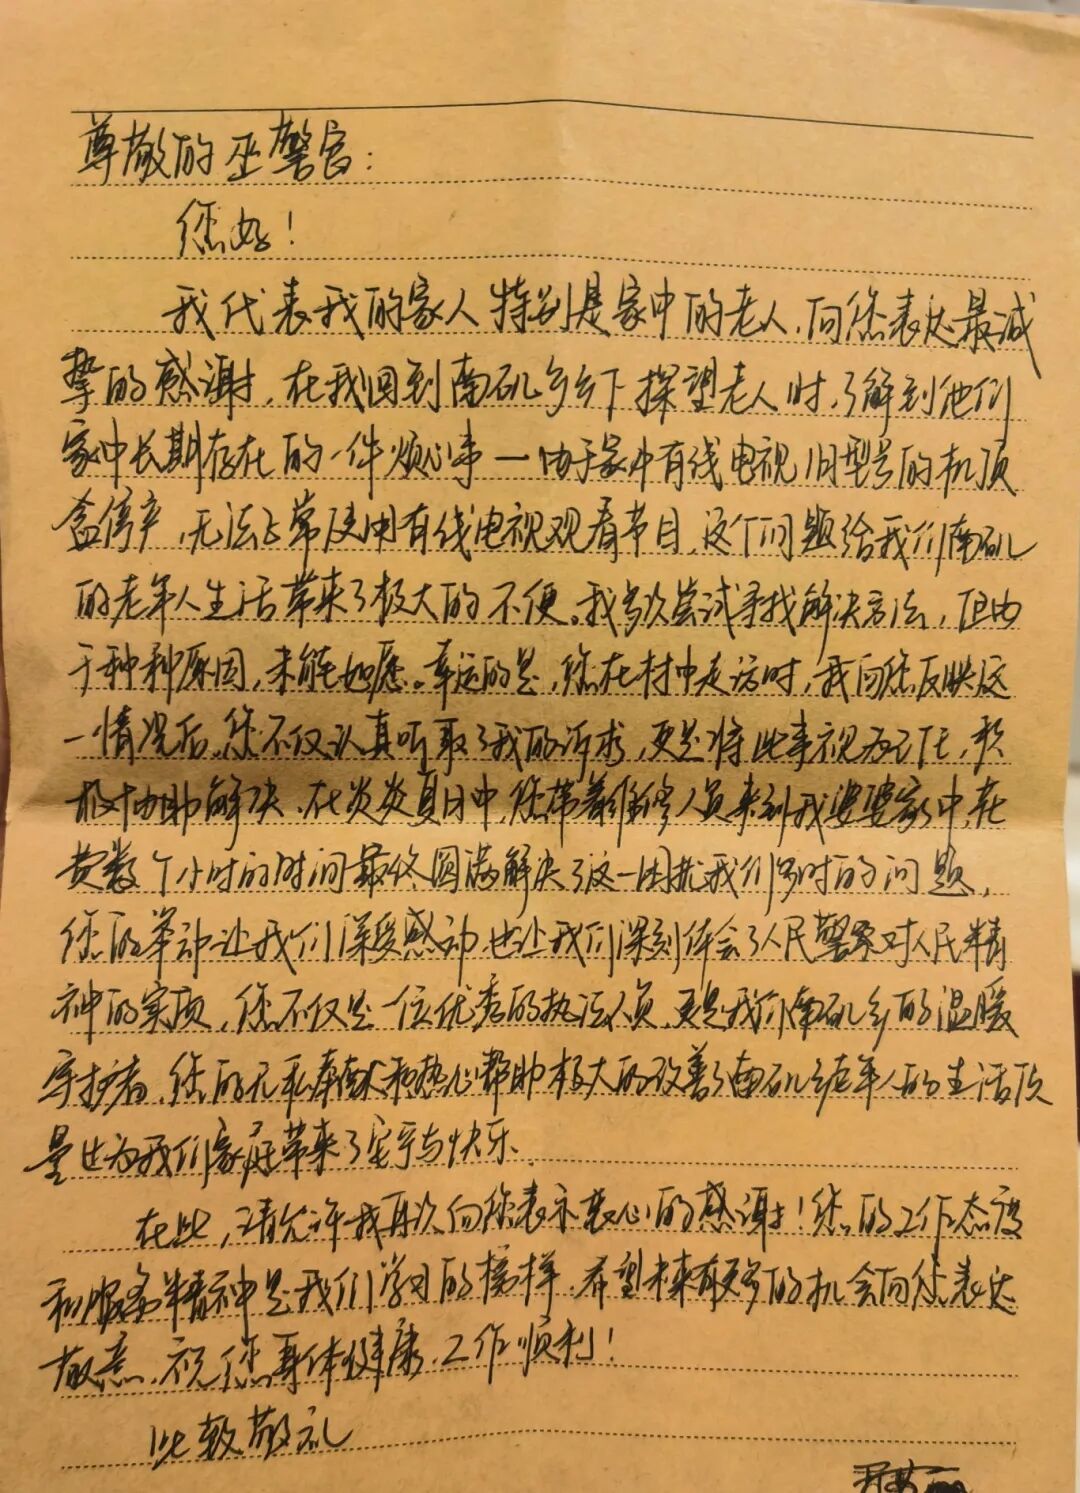 尊敬的巫警官：
您好！
我代表我的家人特别是家中的老人，向您表达最诚
挚的感谢，在我回到南矶乡乡下探望老人时，了解到他们
家中长期存在的一件烦心事—由于家中有线电视旧型号的机顶
盒停产，无法正常使用有线电视观看节目，这个问题给我们南矶
的老年人生活带来了极大的不便。我多次尝试寻找解决方法，但由
于种种原因，未能如愿。幸运的是，您在村中走访时，我向您反映这
一情况后，您不仅认真听取了我的诉求，更是将此事视为己任，积
极协助解决。在炎炎夏日中，您带着维修人员来到我婆婆家中，花
费数个小时的时间最终圆满解决了这一困扰我们多时的问题。
您的举动让我们深受感动，也让我们深刻体会了人民警察对人民精
神的实质，您不仅是一位优秀的执法人员，更是我们南矶乡的温暖
守护者，您的无私奉献和热心帮助极大的改善了南矶乡老年人的生活质
量，也为我们家庭带来了安宁与快乐。
在此，请允许我再次向您表示衷心的感谢！您的工作态度
和服务精神是我们学习的榜样，希望未来有更多的机会向您表达
敬意，祝您身体健康，工作顺利！
此致敬礼